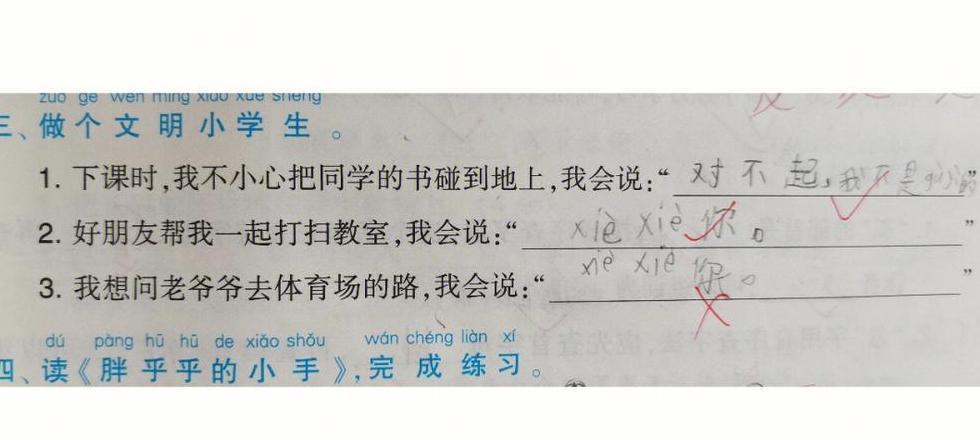 zuò ge wén míng xiǎo xué shēng
三、做个文明小学生。
1. 下课时,我不小心把同学的书碰到地上,我会说:“对不起,我不是gù yì的”
2. 好朋友帮我一起打扫教室,我会说:“xiè xiè 你。”
3. 我想问老爷爷去体育场的路,我会说:“xiè xiè 你。”
dú pàng hū hū de xiǎo shǒu wán chéng liàn xí
四、读《胖乎乎的小手》,完成练习。